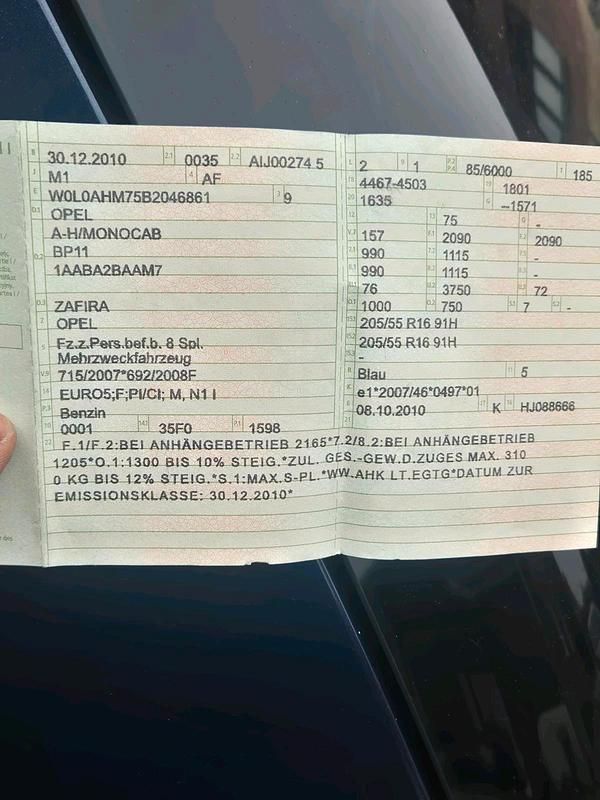 B 30.12.2010 2.1 0035 2.2 AIJ00274 5
J M1 4 AF
E W0L0AHM75B2046861 3 9
D.1 OPEL
A-H/MONOCAB
D.2 BP11
1AABA2BAAM7
D.3 ZAFIRA
2 OPEL
5 Fz.z.Pers.bef.b. 8 Spl.
Mehrzweckfahrzeug
V.9 715/2007*692/2008F
14 EURO5;F;PI/CI; M, N1 I
P.3 Benzin
10 0001 14.1 35F0 P.1 1598
L 2 9 1 P.2 P.4 85/6000 T 185
18 4467-4503 19 1801
20 1635 G –1571
12 - 13 75 Q -
V.7 157 F.1 2090 F.2 2090
7.1 990 7.2 1115 7.3 -
8.1 990 8.2 1115 8.3 -
U.1 76 U.2 3750 U.3 72
O.1 1000 O.2 750 S.1 7 S.2 -
15.1 205/55 R16 91H
15.2 205/55 R16 91H
15.3 -
R Blau 11 5
K e1*2007/46*0497*01
6 08.10.2010 17 K 16 HJ088666
21
22 F.1/F.2:BEI ANHÄNGEBETRIEB 2165*7.2/8.2:BEI ANHÄNGEBETRIEB
1205*O.1:1300 BIS 10% STEIG.*ZUL. GES.-GEW.D.ZUGES MAX. 310
0 KG BIS 12% STEIG.*S.1:MAX.S-PL.*WW.AHK LT.EGTG*DATUM ZUR
EMISSIONSKLASSE: 30.12.2010*